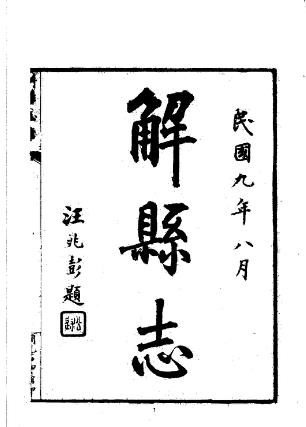 民國九年八月
解縣志
汪兆彭題